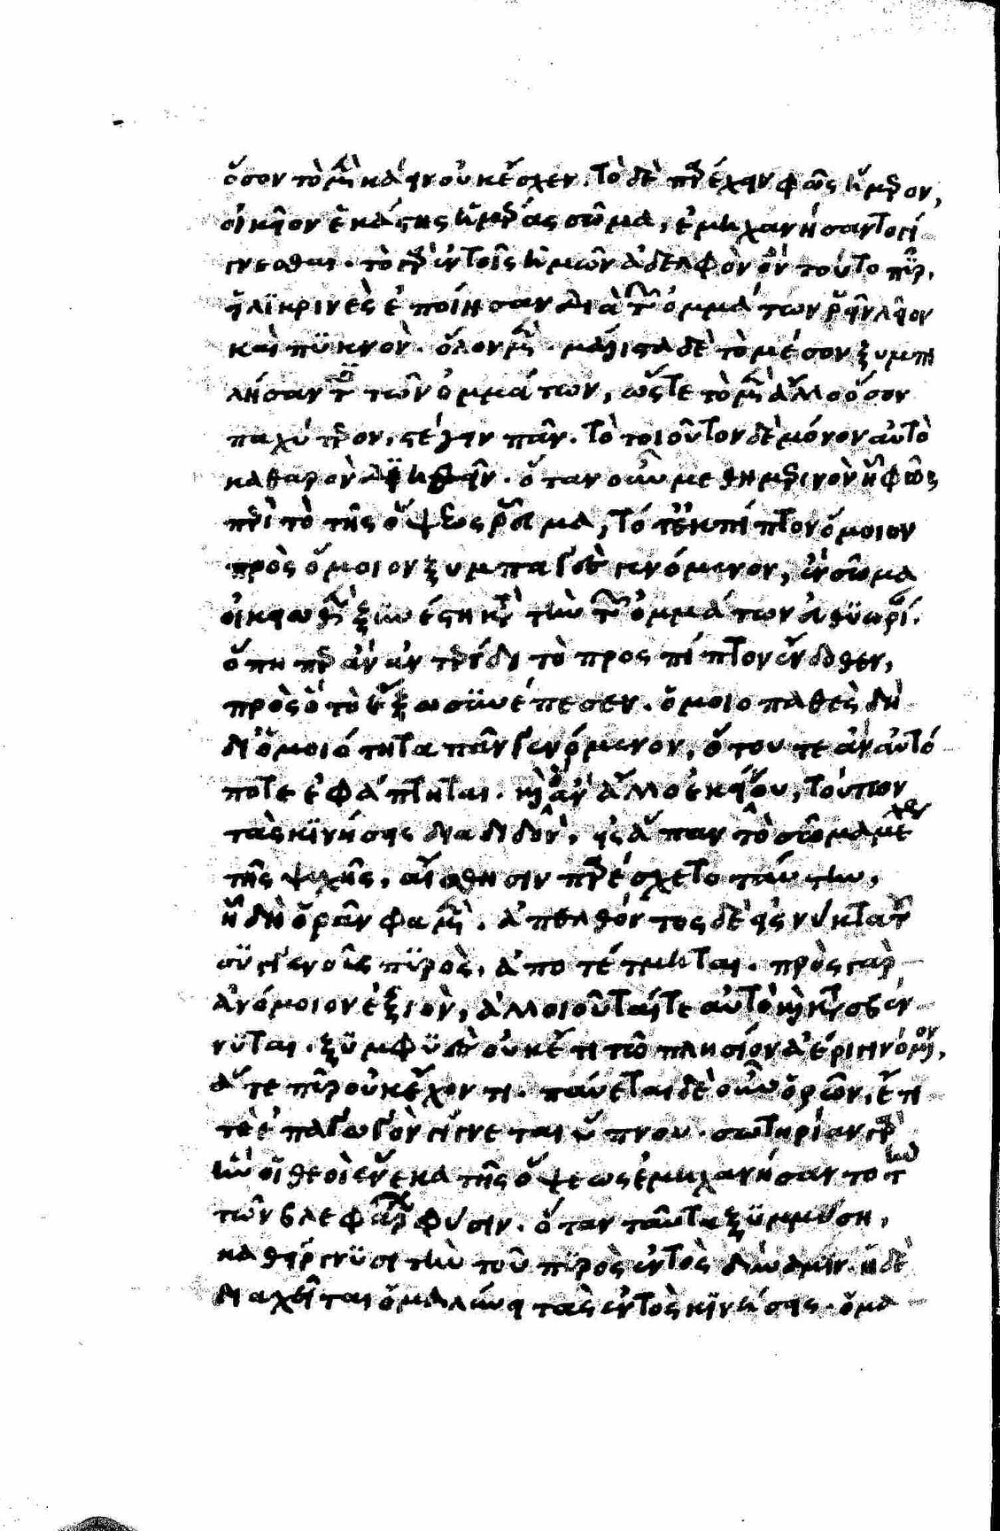 ὅσον τὸ μὲν κάειν οὐκ ἔσχεν. τὸ δὲ παρέχειν φῶς ἥμερον,
οἰκεῖον ἑκάστης ἡμέρας σῶμα, ἐμηχανήσαντο γί
γνεσθαι. τὸ γὰρ ἐντὸς ἡμῶν ἀδελφὸν ὂν τούτου πῦρ,
εἰλικρινὲς ἐποίησαν διὰ τῶν ὀμμάτων ῥεῖν λεῖον
καὶ πυκνὸν. ὅλον μὲν. μάλιστα δὲ τὸ μέσον ξυμπι
λήσαντες τῶν ὀμμάτων, ὥστε τὸ μὲν ἄλλο ὅσον
παχύτερον, στέγειν πᾶν. τὸ τοιοῦτον δὲ μόνον αὐτὸ
καθαρὸν διηθεῖν. ὅταν οὖν μεθημερινὸν ᾖ φῶς
περὶ τὸ τῆς ὄψεως ῥεῦμα, τότ' ἐκπίπτον ὅμοιον
πρὸς ὅμοιον ξυμπαγὲς γενόμενον, ἓν σῶμα
οἰκειωθὲν ξυνέστη κατὰ τὴν τῶν ὀμμάτων εὐθυωρίαν.
ὅπηπερ ἂν ἀντερείδῃ τὸ προσπίπτον ἔνδοθεν,
πρὸς ὃ τῶν ἔξω συνέπεσεν. ὁμοιοπαθὲς δὴ
δι' ὁμοιότητα πᾶν γενόμενον, ὅτου τε ἂν αὐτό
ποτε ἐφάπτηται. καὶ ὃ ἂν ἄλλο ἐκείνου, τούτων
τὰς κινήσεις διαδιδὸν, εἰς ἅπαν τὸ σῶμα μέχρι
τῆς ψυχῆς, αἴσθησιν παρέσχετο ταύτην,
ᾗ δὴ ὁρᾶν φαμὲν. ἀπελθόντος δὲ εἰς νύκτα τοῦ
συγγενοῦς πυρὸς, ἀποτέτμηται. πρὸς γὰρ
ἀνόμοιον ἐξιὸν, ἀλλοιοῦταί τε αὐτὸ καὶ κατασβέν
νυται. ξυμφυὲς οὐκέτι τῷ πλησίον ἀέρι γιγνόμενον,
ἅτε πῦρ οὐκ ἔχοντι. παύεταί δὲ οὖν ὁρῶν, ἔτι
τε ἐπαγωγὸν γίγνεται ὕπνου. σωτηρίαν γὰρ
ἣν οἱ θεοὶ ἕνεκα τῆς ὄψεως ἐμηχανήσαντο τὴν
τῶν βλεφάρων φύσιν. ὅταν ταῦτα ξυμμύσῃ,
καθείργνυσι τὴν τοῦ πυρὸς ἐντὸς δύναμιν. ἡ δὲ
διαχεῖ τε καὶ ὁμαλύνει τὰς ἐντὸς κινήσεις. ὁμα